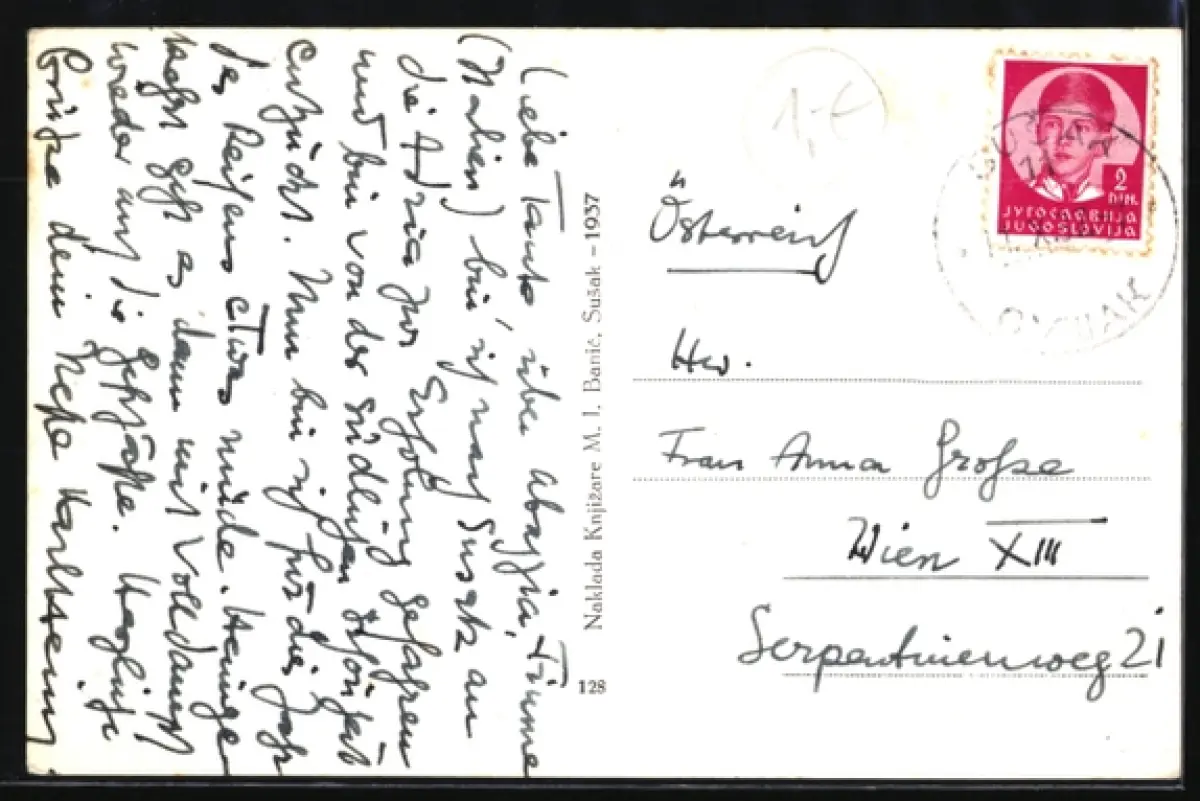 Liebe Tante über Abazzia, Fiume
(Italien) bin ich nach Susak an
die Adria zur Erholung gefahren
und bin von der südlichen Schönheit
entzückt. Nun bin ich für dies Jahr
des Reisens etwas müde. Heimge-
kehrt geht es dann mit Volldampf
wieder an die Geschäfte. Herzliche
Grüße dein Neffe Karl
Naklada Knjižare M. I. Banić, Sušak – 1937
128
1,-€
2
DIN.
ЈУГОСЛАВИЈА
JUGOSLAVIJA
Österreich
Hw.
Frau Anna Große
Wien XIII
Serpentinenweg 21